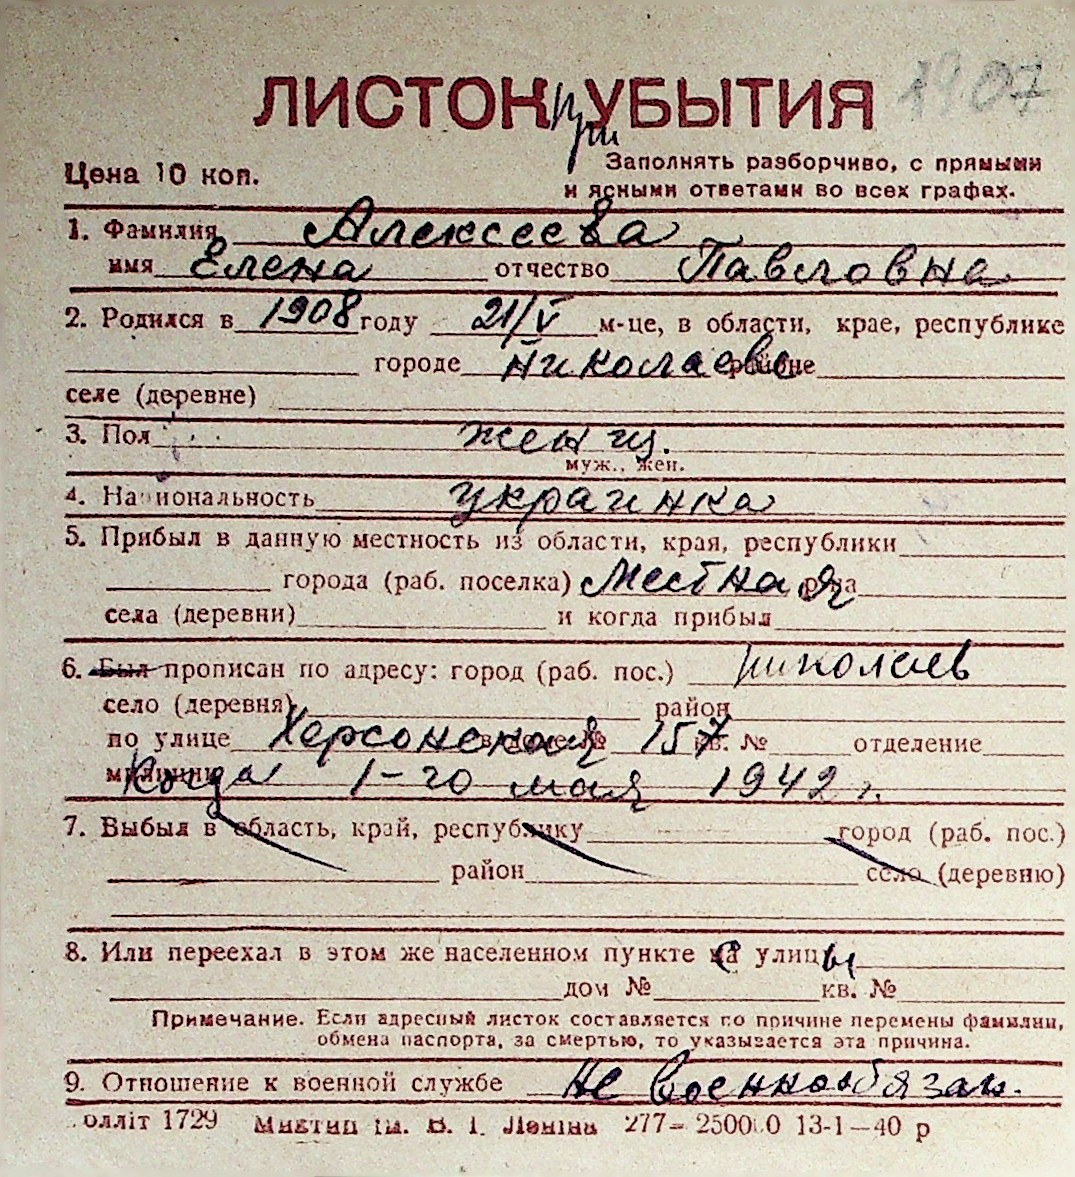 1907
ЛИСТОК при УБЫТИЯ
Цена 10 коп.
Заполнять разборчиво, с прямыми
и ясными ответами во всех графах.
1. Фамилия Алексеева
имя Елена отчество Павловна
2. Родился в 1908 году 21/V м-це, в области, крае, республике
городе Николаеве районе
селе (деревне)
3. Пол женщ.
муж., жен.
4. Национальность украинка
5. Прибыл в данную местность из области, края, республики
города (раб. поселка) Местная р-на
села (деревни) и когда прибыл
6. Был прописан по адресу: город (раб. пос.) Николаев
село (деревня) район
по улице Херсонская в доме № 157 кв. № отделение
милиции Когда 1-го мая 1942 г.
7. Выбыл в область, край, республику город (раб. пос.)
район село (деревню)
8. Или переехал в этом же населенном пункте с улицы
дом № кв. №
Примечание. Если адресный листок составляется по причине перемены фамилии,
обмена паспорта, за смертью, то указывается эта причина.
9. Отношение к военной службе Не военнообязан.
олліт 1729 ім. В. І. Леніна 277— 13-1—40 р